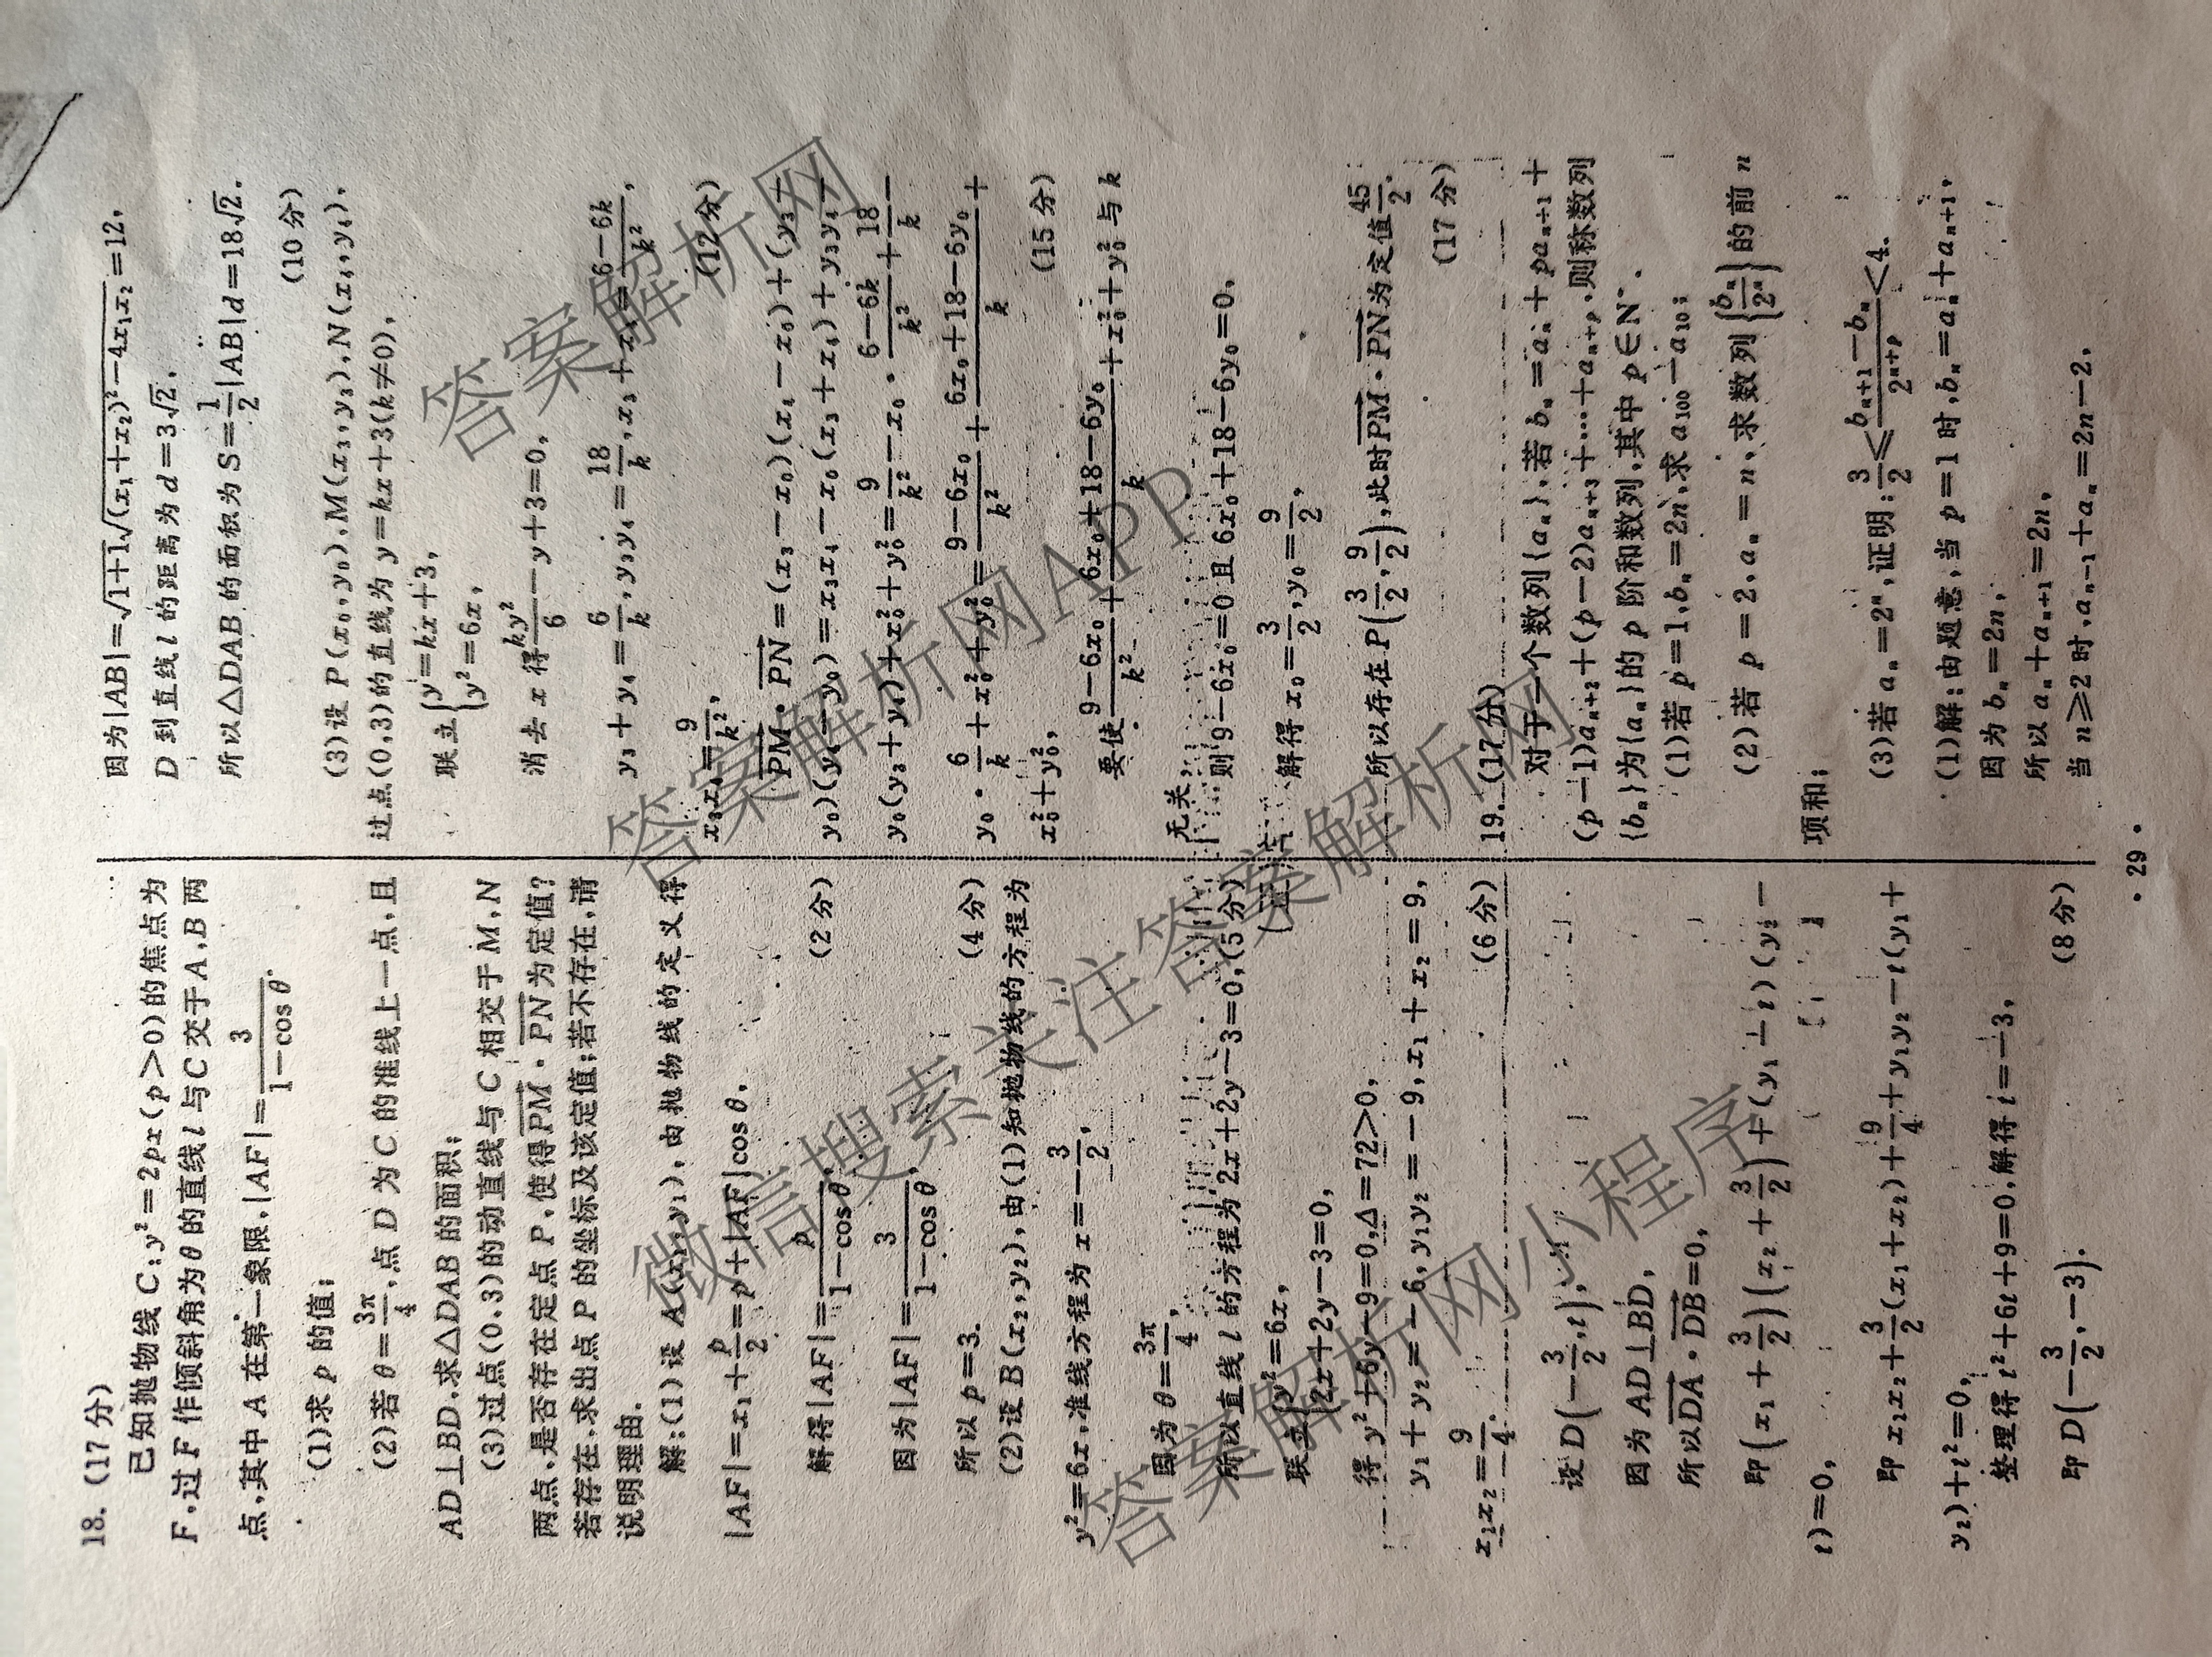 18. (17 分)
已知抛物线 C:y²=2px(p>0)的焦点为
F,过 F 作倾斜角为θ的直线 l 与 C 交于 A,B 两
点,其中 A 在第一象限,|AF|=3/(1−cos θ).
(1)求 p 的值;
(2)若 θ=3π/4,点 D 为 C 的准线上一点,且
AD⊥BD,求△DAB 的面积;
(3)过点(0,3)的动直线与 C 相交于 M,N
两点,是否存在定点 P,使得PM·PN为定值?
若存在,求出点 P 的坐标及该定值;若不存在,请
说明理由.
解:(1)设 A(x₁,y₁),由抛物线的定义得
|AF|=x₁+p/2=p+|AF|cos θ,
解得|AF|=p/(1−cos θ), (2 分)
因为|AF|=3/(1−cos θ),
所以 p=3. (4 分)
(2)设 B(x₂,y₂),由(1)知抛物线的方程为
y²=6x,准线方程为 x=−3/2,
因为 θ=3π/4,
所以直线 l 的方程为 2x+2y−3=0,(5 分)
联立{y²=6x, 2x+2y−3=0,
得 y²+6y−9=0,Δ=72>0,
y₁+y₂=−6,y₁y₂=−9,x₁+x₂=9,
x₁x₂=9/4. (6 分)
设 D(−3/2,t),
因为 AD⊥BD,
所以DA·DB=0,
即(x₁+3/2)(x₂+3/2)+(y₁−t)(y₂−
t)=0,
即 x₁x₂+3/2(x₁+x₂)+9/4+y₁y₂−t(y₁+
y₂)+t²=0,
整理得 t²+6t+9=0,解得 t=−3,
即 D(−3/2,−3). (8 分)
因为|AB|=√(1+1)√((x₁+x₂)²−4x₁x₂)=12,
D 到直线 l 的距离为 d=3√2,
所以△DAB 的面积为 S=1/2|AB|d=18√2.
(10 分)
(3)设 P(x₀,y₀),M(x₃,y₃),N(x₄,y₄),
过点(0,3)的直线为 y=kx+3(k≠0),
联立{y=kx+3, y²=6x,
消去 x 得ky²/6−y+3=0,
y₃+y₄=6/k,y₃y₄=18/k,x₃+x₄=(6−6k)/k²,
x₃x₄=9/k², (12 分)
PM·PN=(x₃−x₀)(x₄−x₀)+(y₃−
y₀)(y₄−y₀)=x₃x₄−x₀(x₃+x₄)+y₃y₄−
y₀(y₃+y₄)+x₀²+y₀²=9/k²−x₀·(6−6k)/k²+18/k−
y₀·6/k+x₀²+y₀²=(9−6x₀)/k²+(6x₀+18−6y₀)/k+
x₀²+y₀², (15 分)
要使(9−6x₀)/k²+(6x₀+18−6y₀)/k+x₀²+y₀²与 k
无关,
则 9−6x₀=0 且 6x₀+18−6y₀=0,
解得 x₀=3/2,y₀=9/2,
所以存在 P(3/2,9/2),此时PM·PN为定值45/2.
(17 分)
19. (17 分)
对于一个数列{aₙ},若 bₙ=aₙ+paₙ₊₁+
(p−1)aₙ₊₂+(p−2)aₙ₊₃+…+aₙ₊ₚ,则称数列
{bₙ}为{aₙ}的 p 阶和数列,其中 p∈N*.
(1)若 p=1,bₙ=2n,求 a₁₀₀−a₁₀;
(2)若 p=2,aₙ=n,求数列{bₙ/2ⁿ}的前 n
项和;
(3)若 aₙ=2ⁿ,证明:3/2≤(bₙ₊₁−bₙ)/2ⁿ⁺ᵖ<4.
(1)解:由题意,当 p=1 时,bₙ=aₙ+aₙ₊₁,
因为 bₙ=2n,
所以 aₙ+aₙ₊₁=2n,
当 n≥2 时,aₙ₋₁+aₙ=2n−2,
· 29 ·
答案解析网
答案解析网APP
微信搜索关注答案解析网
答案解析网小程序